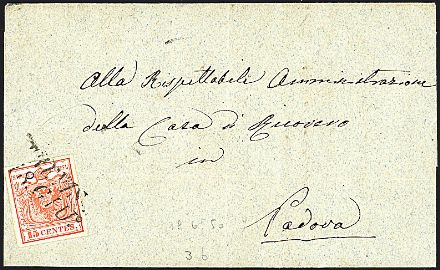 Alla Rispettabile Amministrazione
della Casa di Ricovero
in
Padova
15 CENTES.
18 6 50
36